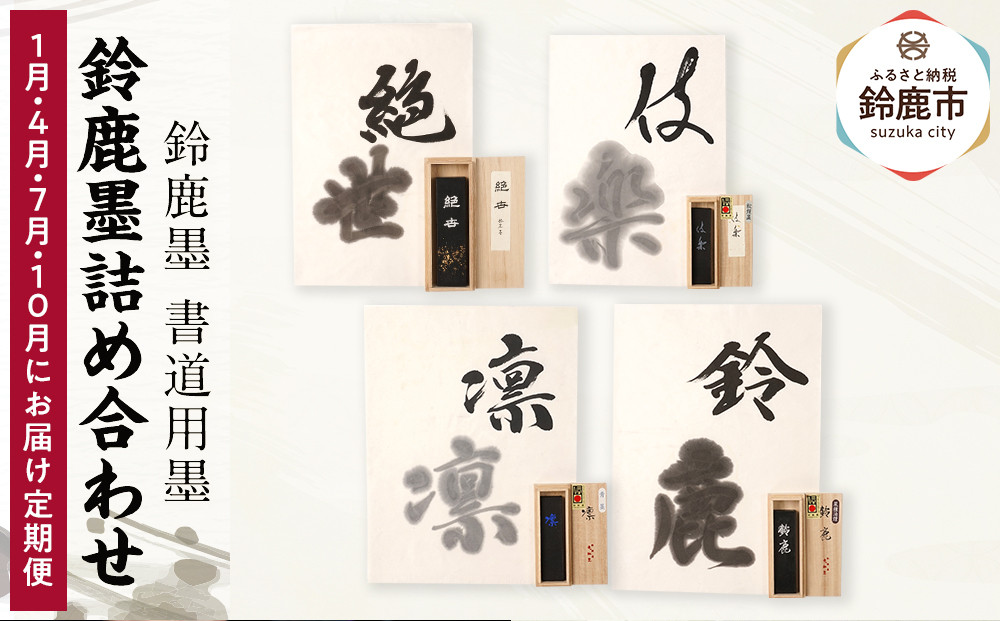 1月・4月・7月・10月にお届け定期便
鈴鹿墨詰め合わせ
鈴鹿墨 書道用墨
ふるさと納税
鈴鹿市
suzuka city
絶
世
絶世
絶世
伎
楽
伎楽
伎楽
松煙墨
凛
凛
凛
凛
青墨
鈴
鹿
鈴鹿
鈴鹿